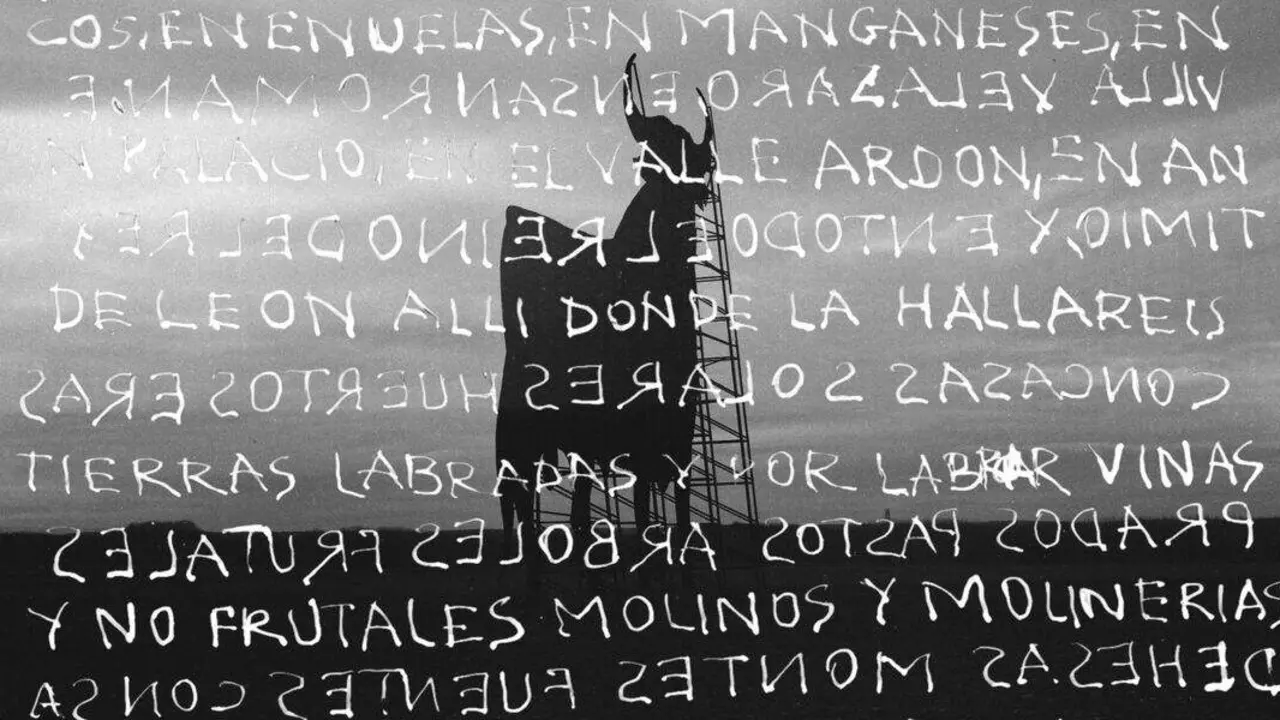 COS, EN ENUELAS, EN MANGANESES, EN
VILLA YELAZARO, EN SAN ROMAN, E
N PALACIO, EN EL VALLE ARDON, EN AN
TIMIO, Y EN TODO EL REINO DEL REY
DE LEON ALLI DONDE LA HALLAREIS
CON CASAS SOLARES HUERTOS ERAS
TIERRAS LABRADAS Y POR LABRAR VINAS
PRADOS PASTOS ARBOLES FRUTALES
Y NO FRUTALES MOLINOS Y MOLINERIAS
DEHESAS MONTES FUENTES CON SA